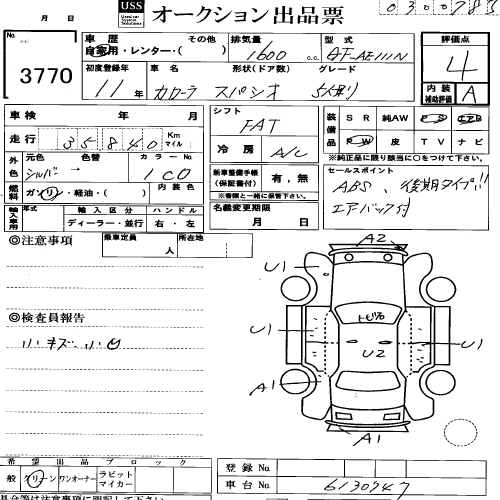 月 日
USS Used car System Solutions オークション出品票
No. 3770
車歴 自家用・レンター・( ) その他
排気量 1600 c.c.
型式 GF-AE111N
評価点 4
初度登録年 11年
車名 カローラ スパシオ
形状(ドア数) グレード 5人乗り
内装補助評価 A
車検 年 月
シフト FAT
装備品 SR 純AW PS
PW 皮 TV ナビ
※純正品に限り該当に○をつけて下さい。
走行 35840 Km マイル
冷房 A/C
外色 元色 シルバー 色替 → カラーNo 1C0
新車整備手帳(保証書付) 有・無
※書類と一緒に保管下さい。
セールスポイント
ABS、後期タイプ!!
エアバック付
燃料 ガソリン・軽油・( ) 内装色
名義変更期限 月 日
輸入車用 年式 輸入区分 ハンドル
ディーラー・並行 右・左
◎注意事項
乗車定員 人 所在地
A2
U1
トビ76
U1
U2
U1
A1
A1
◎検査員報告
小キズ・小凹
希望出品ブロック
一般 クリーン ワンオーナー ラビットマイカー
登録No
車台No 6130947